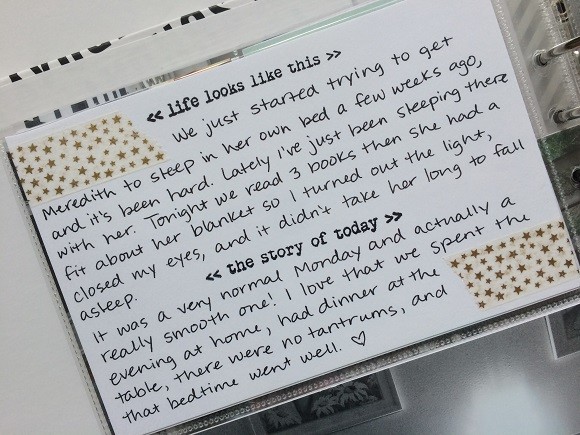 << life looks like this >>
We just started trying to get
Meredith to sleep in her own bed a few weeks ago,
and it's been hard. Lately I've just been sleeping there
with her. Tonight we read 3 books then she had a
fit about her blanket so I turned out the light,
closed my eyes, and it didn't take her long to fall
asleep.
<< the story of today >>
It was a very normal Monday and actually a
really smooth one! I love that we spent the
evening at home, had dinner at the
table, there were no tantrums, and
that bedtime went well. ♡